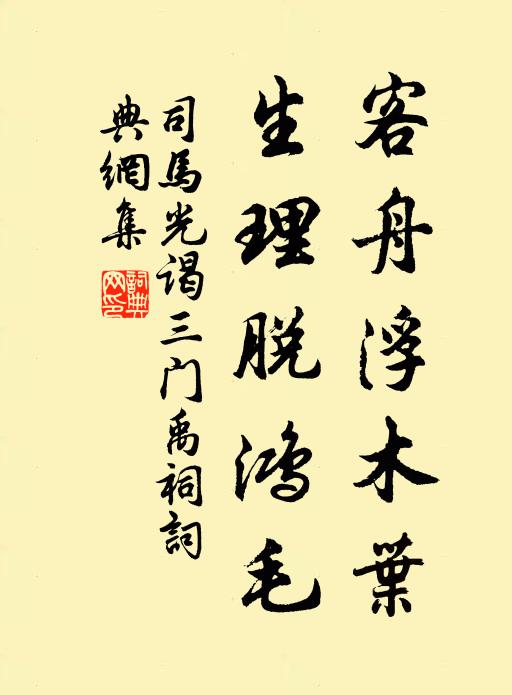 客舟浮木葉
生理脱鴻毛
司馬光谒三门禹祠詞
典網集
詞典网印